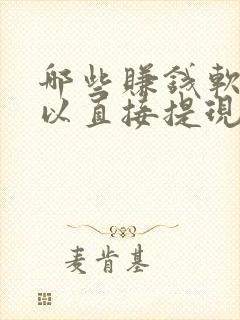 哪些賺錢軟
以直接提現
麦肯基